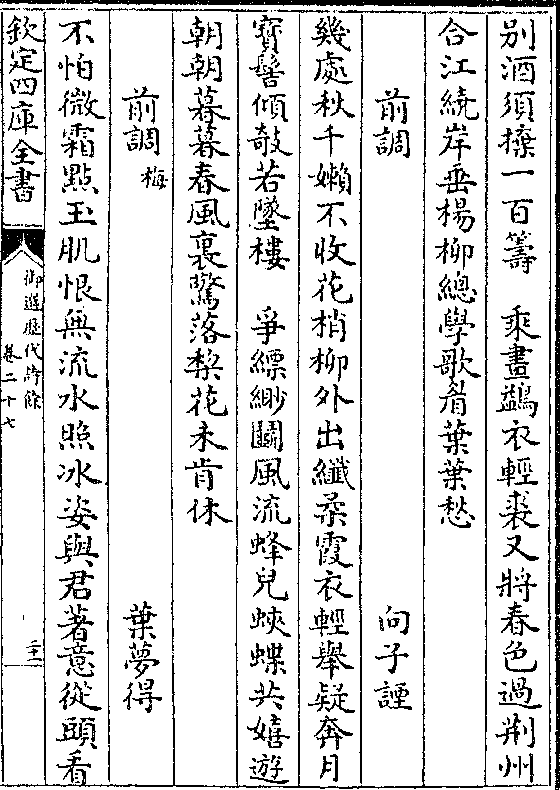 別酒須𢷬一百籌　乘畫鷁衣輕裘又將春色過荆州
合江繞岸垂楊柳總學歌眉葉葉愁
前調　向子諲
幾處秋千嬾不收花梢柳外出纖柔霞衣輕舉疑奔月
寳髻傾欹若墜樓　爭縹緲鬭風流蜂兒蛺蝶共嬉遊
朝朝暮暮春風裏驚落棃花未肯休
前調梅　葉夢得
不怕微霜點玉肌恨無流水照冰姿與君著意從頭看
欽定四庫全書
御選歷代詩餘
卷二十七